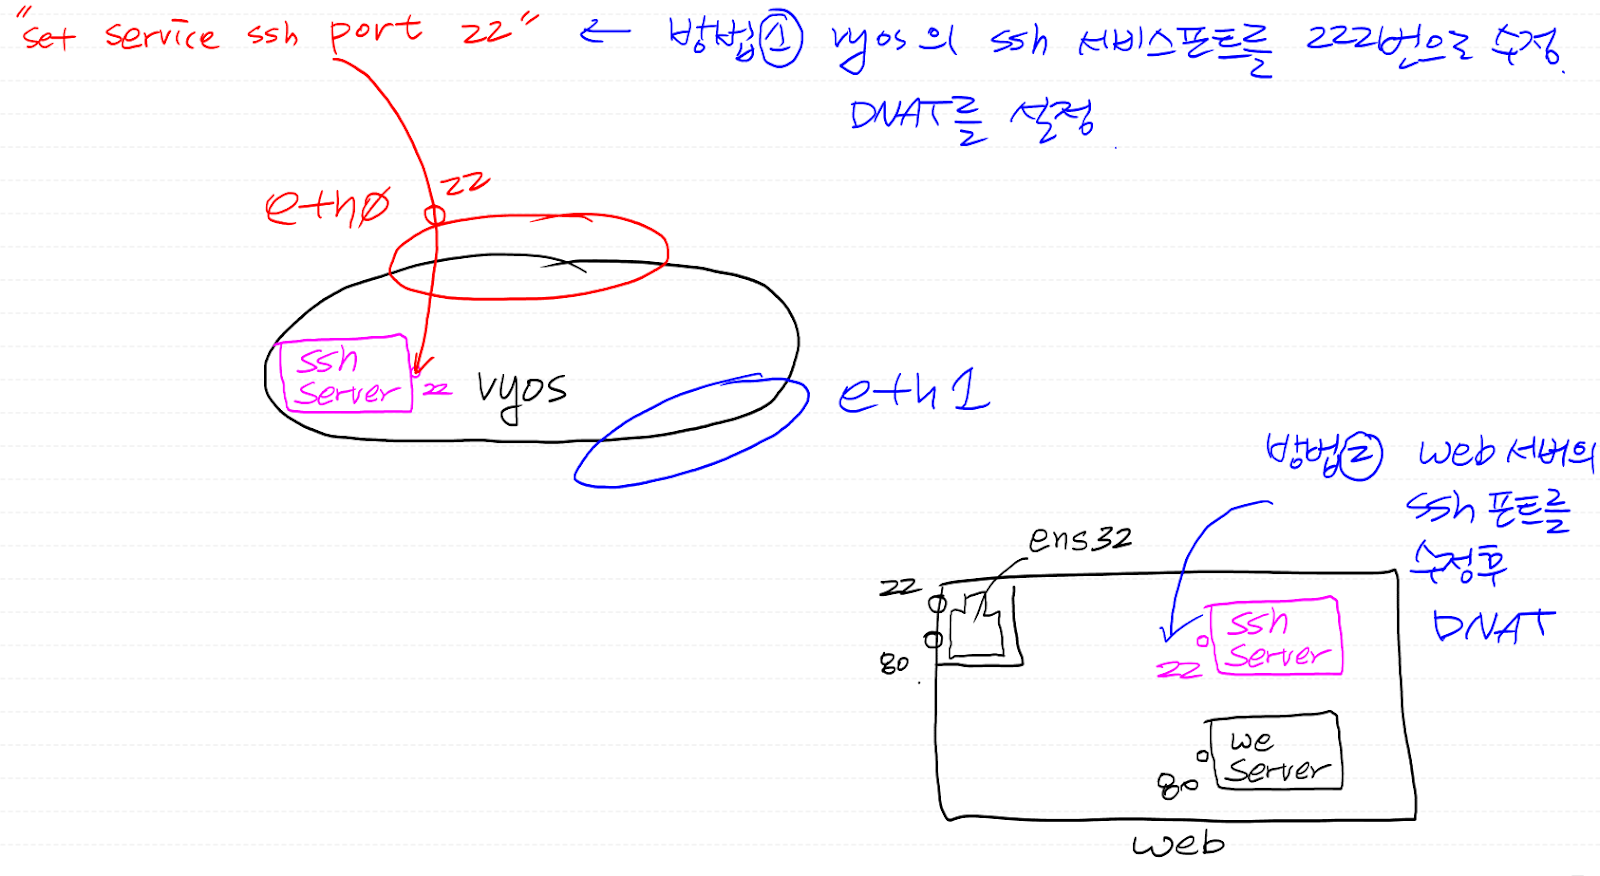 "set service ssh port 22" ← 방법① vyos의 ssh 서비스포트를 2221번으로 수정.
DNAT를 설정
eth0
22
ssh
server
22
vyos
eth1
방법② web 서버의
ssh 포트를
수정후
DNAT
ens32
22
80
ssh
server
22
we
server
80
web